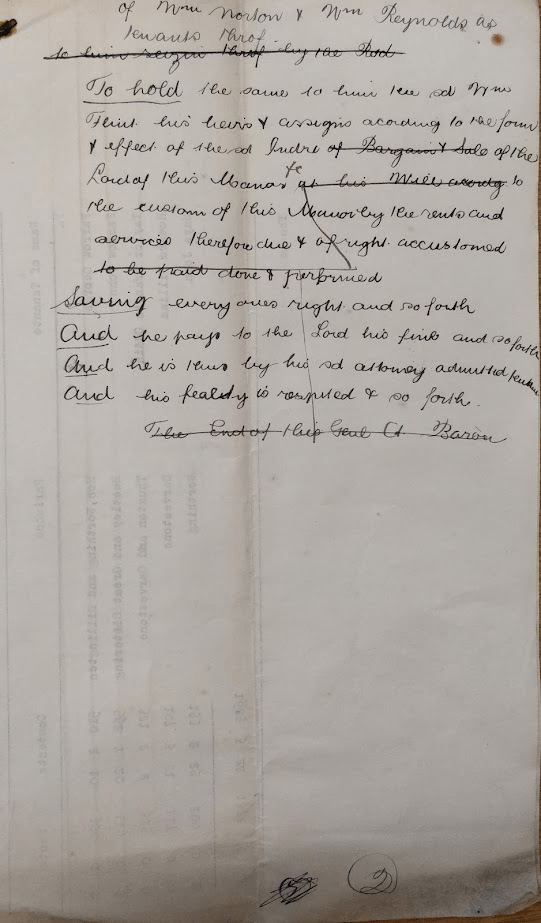 of Wm Norton & Wm Reynolds as
tenants throf
to him seizin throf by the Rod
To hold the same to him the sd Wm
Flint his heirs & assigns acording to the form
& effect of the sd Indre of Bargain & Sale of the
Lord of this Manor &c at his Will acordg to
the custom of this Manor by the rents and
services therefore due & of right accustomed
to be paid done & performed
Saving every ones right and so forth
And he pays to the Lord his fine and so forth
And he is thus by his sd attorney admitted tenant
And his fealty is respited & so forth.
The End of this Genl Ct Baron
2
Name of Tenants
Parishes
Contents
Worthing
Garvestone
Thuxton and Garvestone
Beetley and Great Bittering
Hoe, Worthing and Dillington